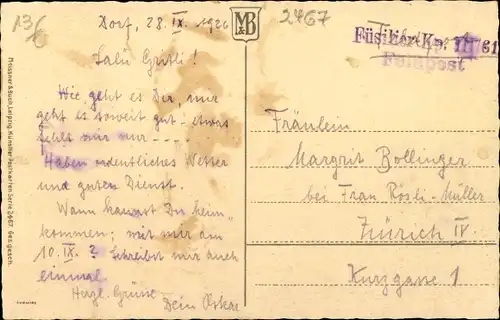 13/6
Dorf, 28. IX. 1920
M&B
2467
Salü Gritli!
Wie geht es Dir, mir
geht es soweit gut - etwas
fehlt mir nur ----
Haben ordentliches Wetter
und guten Dienst.
Wann kannst Du heim-
kommen; mit mir am
10. IX. ? Schreibst mir auch
einmal
Herzl. Grüsse
Dein Oskar
Füsilier-Kp. III/61
Feldpost
Fräulein
Margrit Bollinger
bei Frau Rösli-Müller
Zürich IV.
Kurzgasse 1
Meissner & Buch, Leipzig. Künstler-Postkarten Serie 2467. Ges. gesch.